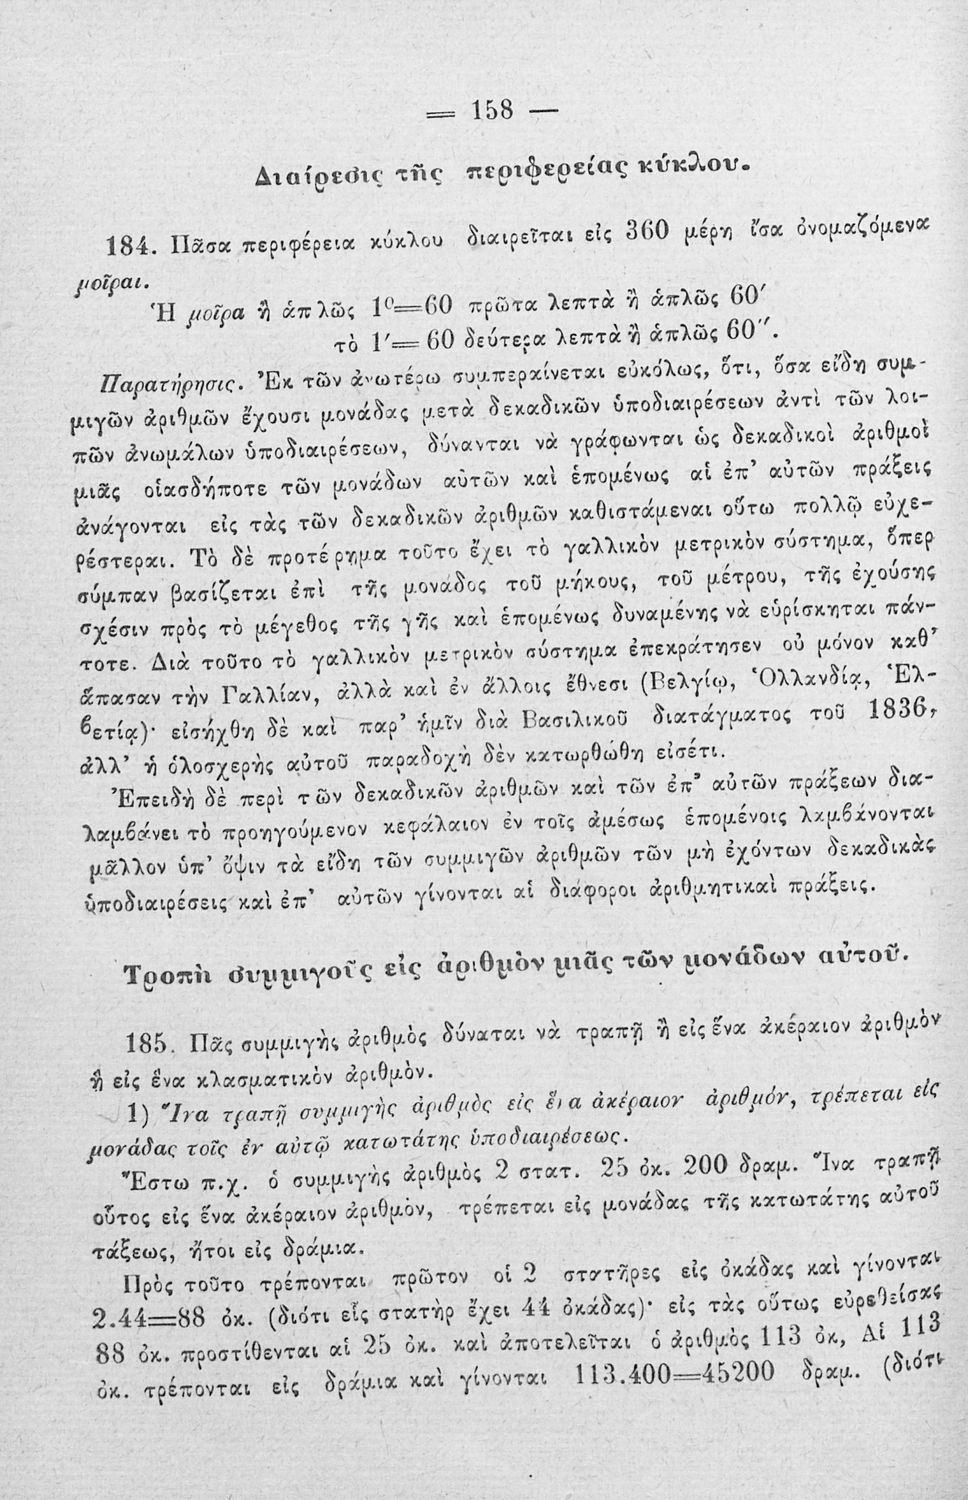 = 158 —
Διαίρεσις τῆς περιφερείας κύκλου.
184. Πᾶσα περιφέρεια κύκλου διαιρεῖται εἰς 360 μέρη ἴσα ὀνομαζόμενα
μοῖραι.
Ἡ μοῖρα ἢ ἁπλῶς 1⁰=60 πρῶτα λεπτὰ ἢ ἁπλῶς 60′
τὸ 1′= 60 δεύτερα λεπτὰ ἢ ἁπλῶς 60″.
Παρατήρησις. Ἐκ τῶν ἀνωτέρω συμπεραίνεται εὐκόλως, ὅτι, ὅσα εἴδη συμ-
μιγῶν ἀριθμῶν ἔχουσι μονάδας μετὰ δεκαδικῶν ὑποδιαιρέσεων ἀντὶ τῶν λοι-
πῶν ἀνωμάλων ὑποδιαιρέσεων, δύνανται νὰ γράφωνται ὡς δεκαδικοὶ ἀριθμοὶ
μιᾶς οἱασδήποτε τῶν μονάδων αὐτῶν καὶ ἑπομένως αἱ ἐπ' αὐτῶν πράξεις
ἀνάγονται εἰς τὰς τῶν δεκαδικῶν ἀριθμῶν καθιστάμεναι οὕτω πολλῷ εὐχε-
ρέστεραι. Τὸ δὲ προτέρημα τοῦτο ἔχει τὸ γαλλικὸν μετρικὸν σύστημα, ὅπερ
σύμπαν βασίζεται ἐπὶ τῆς μονάδος τοῦ μήκους, τοῦ μέτρου, τῆς ἐχούσης
σχέσιν πρὸς τὸ μέγεθος τῆς γῆς καὶ ἑπομένως δυναμένης νὰ εὑρίσκηται πάν-
τοτε. Διὰ τοῦτο τὸ γαλλικὸν μετρικὸν σύστημα ἐπεκράτησεν οὐ μόνον καθ'
ἅπασαν τὴν Γαλλίαν, ἀλλὰ καὶ ἐν ἄλλοις ἔθνεσι (Βελγίῳ, Ὁλλανδίᾳ, Ἑλ-
βετίᾳ)· εἰσήχθη δὲ καὶ παρ' ἡμῖν διὰ Βασιλικοῦ διατάγματος τοῦ 1836,
ἀλλ' ἡ ὁλοσχερὴς αὐτοῦ παραδοχὴ δὲν κατωρθώθη εἰσέτι.
Ἐπειδὴ δὲ περὶ τῶν δεκαδικῶν ἀριθμῶν καὶ τῶν ἐπ' αὐτῶν πράξεων δια-
λαμβάνει τὸ προηγούμενον κεφάλαιον ἐν τοῖς ἀμέσως ἑπομένοις λαμβάνονται
μᾶλλον ὑπ' ὄψιν τὰ εἴδη τῶν συμμιγῶν ἀριθμῶν τῶν μὴ ἐχόντων δεκαδικὰς
ὑποδιαιρέσεις καὶ ἐπ' αὐτῶν γίνονται αἱ διάφοροι ἀριθμητικαὶ πράξεις.
Τροπὴ συμμιγοῦς εἰς ἀριθμὸν μιᾶς τῶν μονάδων αὐτοῦ.
185. Πᾶς συμμιγὴς ἀριθμὸς δύναται νὰ τραπῇ ἢ εἰς ἕνα ἀκέραιον ἀριθμὸν
ἢ εἰς ἕνα κλασματικὸν ἀριθμὸν.
1) Ἵνα τραπῇ συμμιγὴς ἀριθμὸς εἰς ἕνα ἀκέραιον ἀριθμόν, τρέπεται εἰς
μονάδας τοῖς ἐν αὐτῷ κατωτάτης ὑποδιαιρέσεως.
Ἔστω π.χ. ὁ συμμιγὴς ἀριθμὸς 2 στατ. 25 ὀκ. 200 δραμ. Ἵνα τραπῇ
οὗτος εἰς ἕνα ἀκέραιον ἀριθμὸν, τρέπεται εἰς μονάδας τῆς κατωτάτης αὐτοῦ
τάξεως, ἤτοι εἰς δράμια.
Πρὸς τοῦτο τρέπονται πρῶτον οἱ 2 στατῆρες εἰς ὀκάδας καὶ γίνονται
2.44=88 ὀκ. (διότι εἷς στατὴρ ἔχει 44 ὀκάδας)· εἰς τὰς οὕτως εὑρεθείσας
88 ὀκ. προστίθενται αἱ 25 ὀκ. καὶ ἀποτελεῖται ὁ ἀριθμὸς 113 ὀκ, Αἱ 113
ὀκ. τρέπονται εἰς δράμια καὶ γίνονται 113.400=45200 δραμ. (διότι